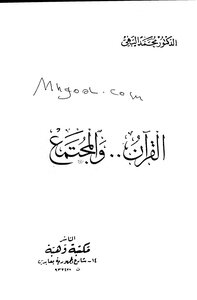 الدكتور محمد البهي
Mhgool.com
القرآن .. والمجتمع
الناشر
مكتبة وهبة
١٤ ش الجمهورية بعابدين